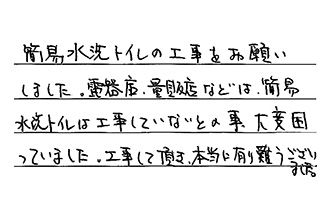 簡易水洗トイレの工事をお願い
しました。電器店、量販店などは、簡易
水洗トイレは工事していないとの事、大変困
っていました。工事して頂き、本当に有り難うござい
ました